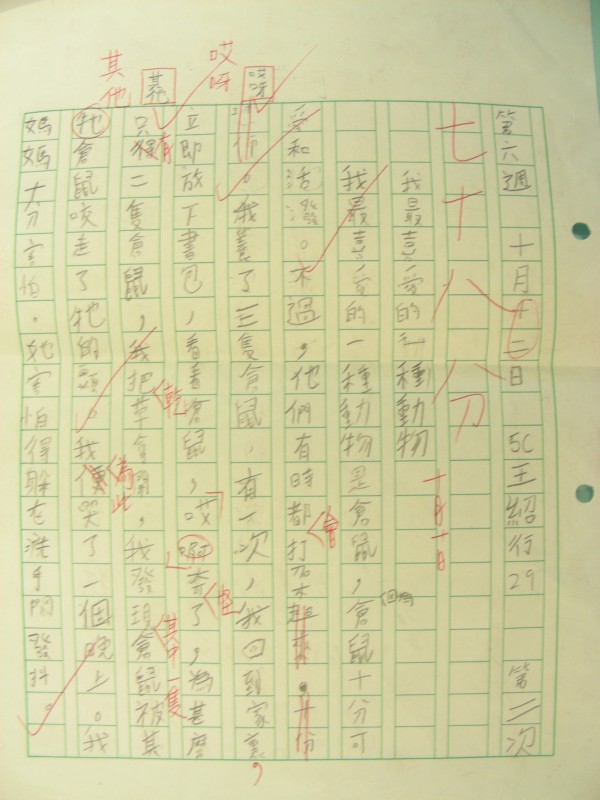 第六週 十月十二日 5C王紹行29 第二次
七十八分
十月十日
我最喜愛的一種動物
我最喜愛的一種動物是倉鼠,倉鼠十分可
因為
愛和活潑。不過,他們有時都打
會
十份
。我養了三隻倉鼠,有一次,我回到家裏
,
立即放下書包,看看倉鼠,哎啊
奇了,為甚麼
怪
哎呀
呀
只有二隻倉鼠,我把草
乾
,我發現倉鼠被其
其中一隻
其他
牠倉鼠咬走了牠的頭。我
哭了一個晚上。我
為此
媽媽十分害怕,她害怕得躲在洗手間發抖。